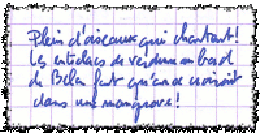 Plein d'oiseaux qui chantent!
Les entrelacs de verdure en bord
de Belon font qu'on se croirait
dans une mangrove!